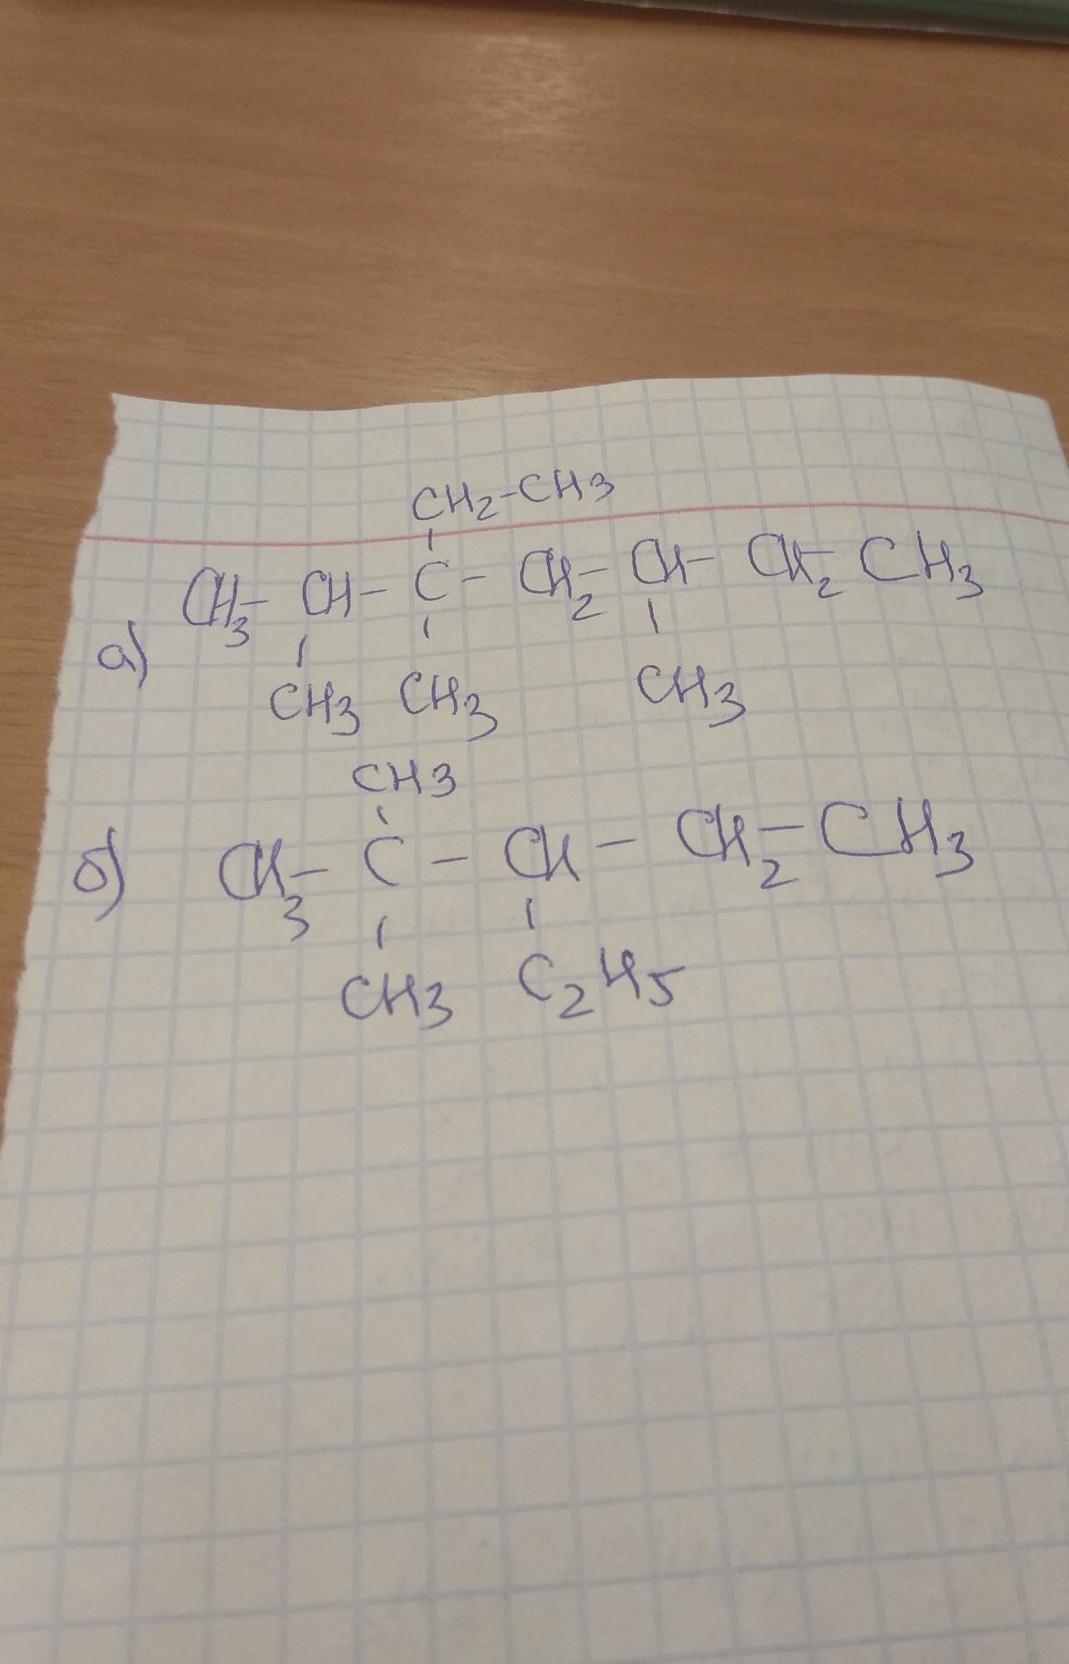 CH2-CH3
а) CH3- CH- C - CH2- CH- CH2- CH3
CH3 CH3 CH3
CH3
б) CH3- C - CH - CH2- CH3
CH3 C2H5